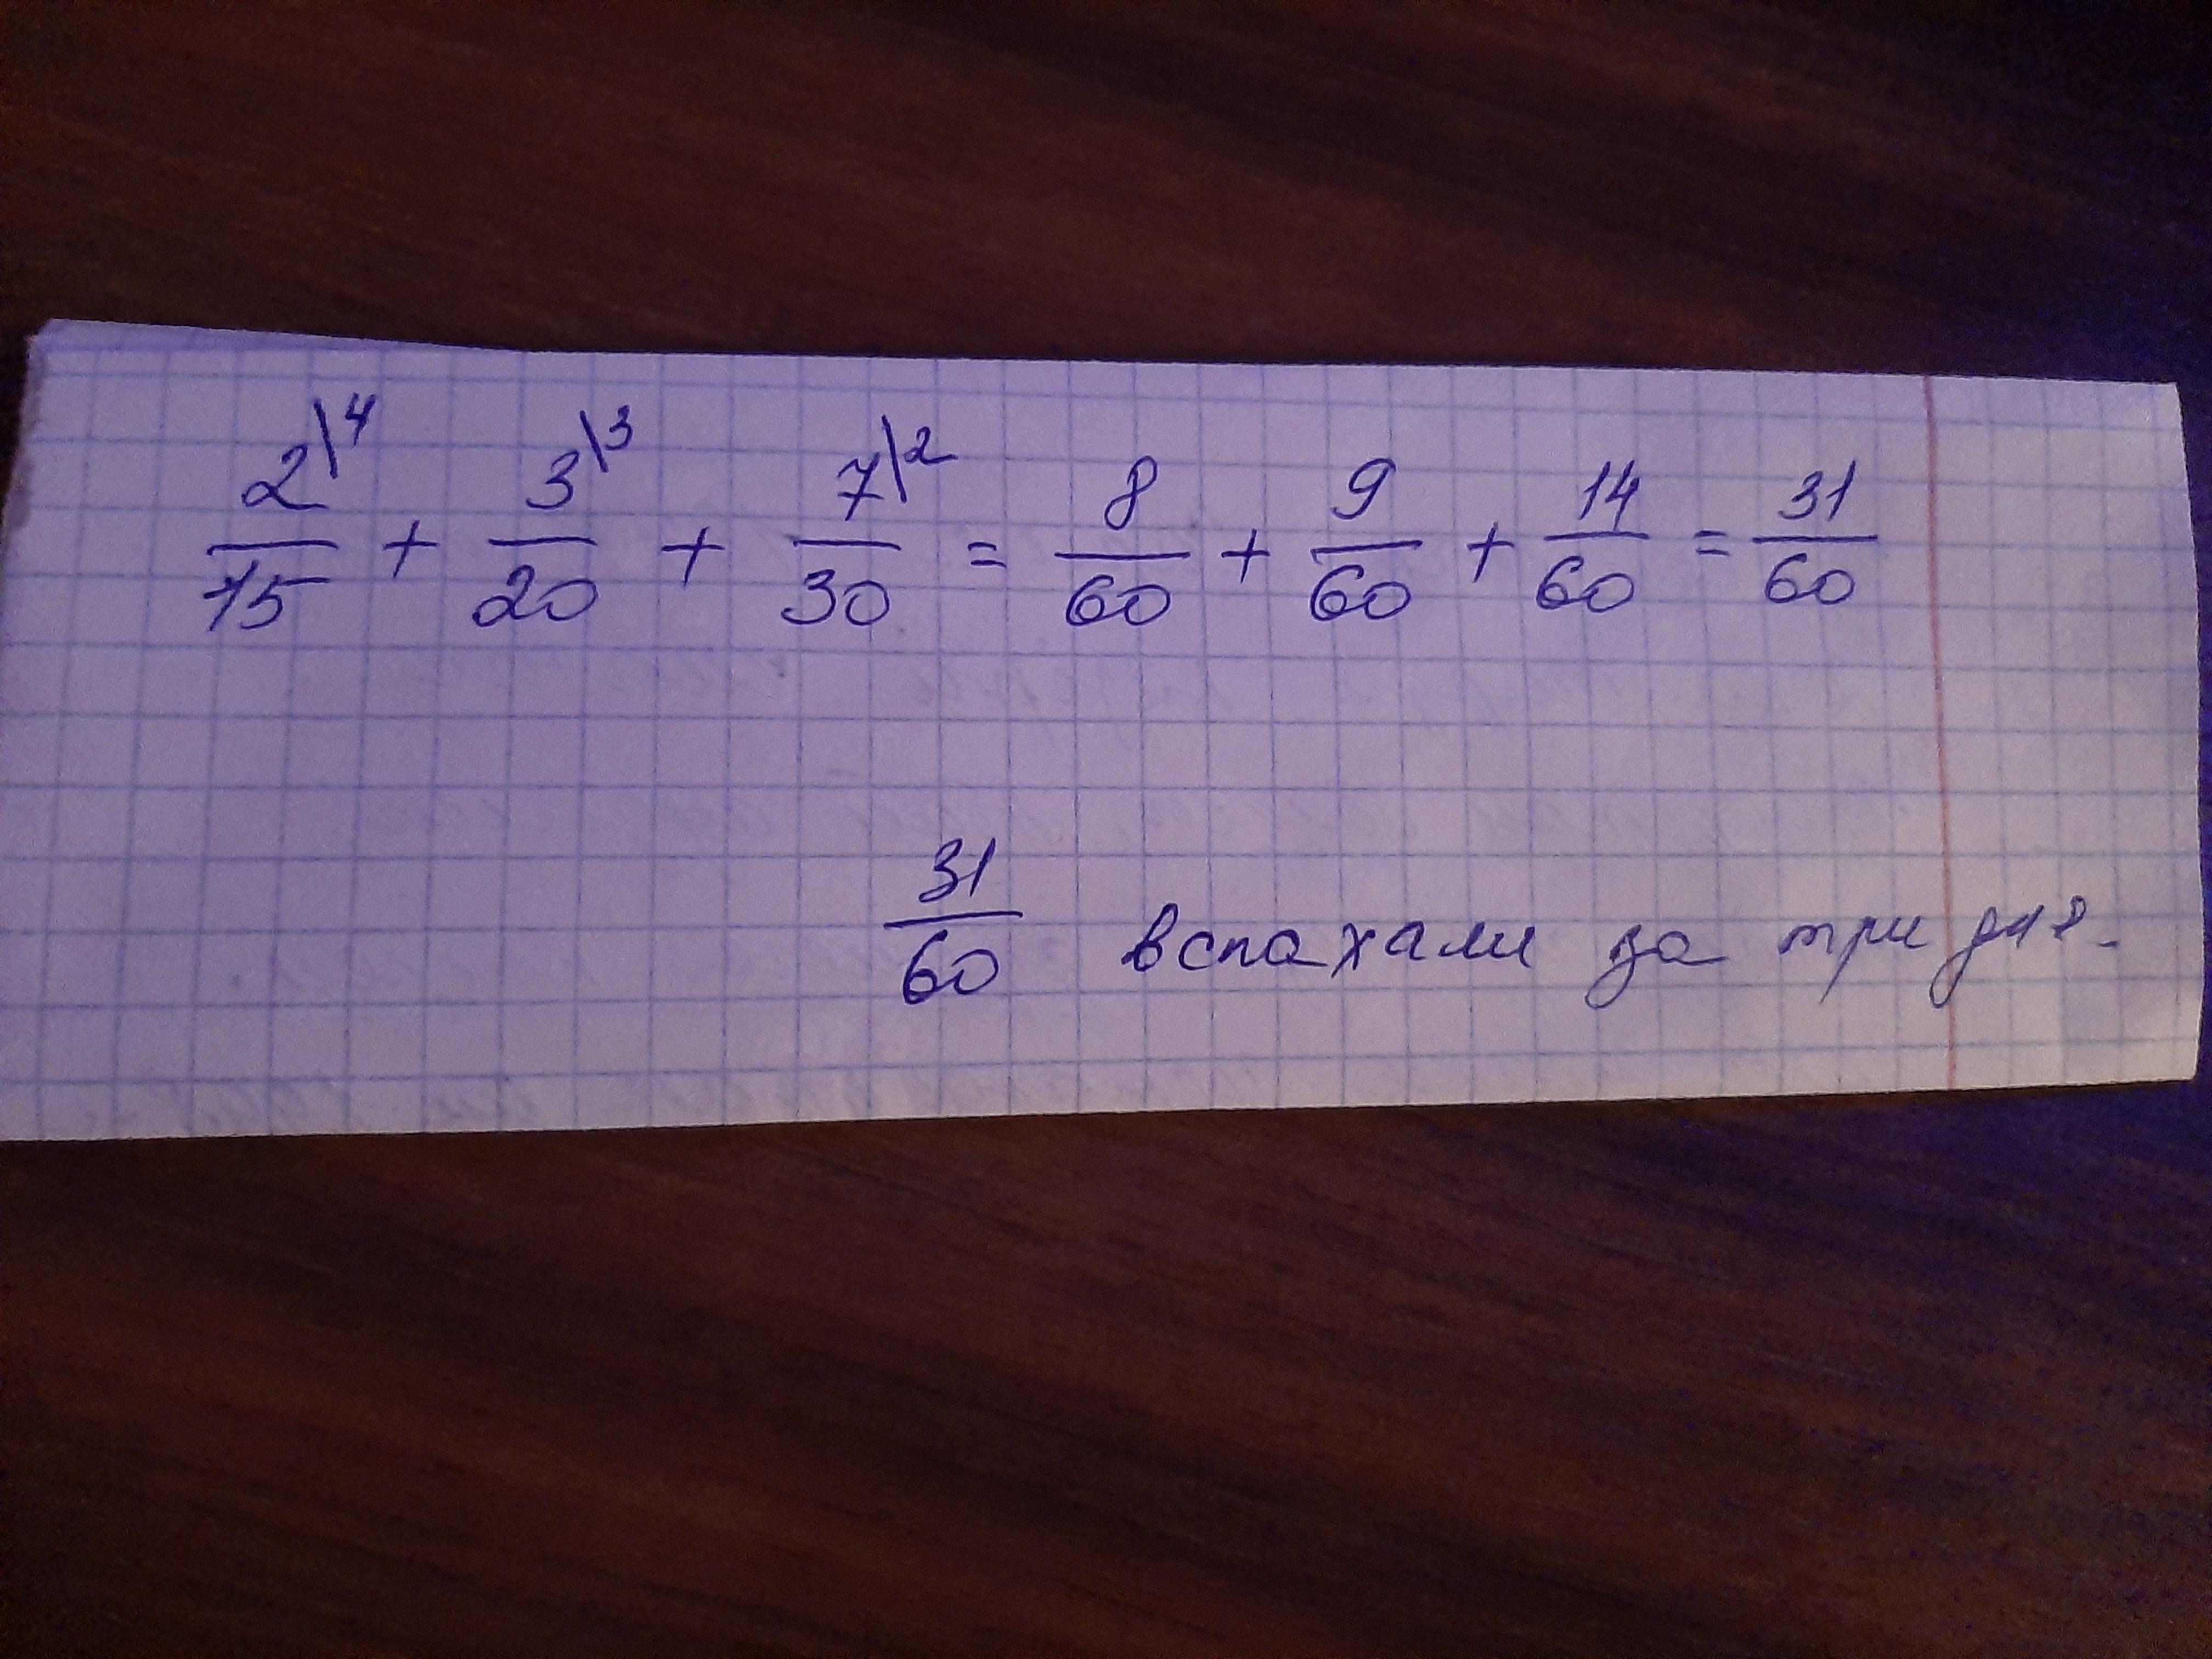 2\4/15 + 3\3/20 + 7\2/30 = 8/60 + 9/60 + 14/60 = 31/60
31/60 вспахали за три дня.